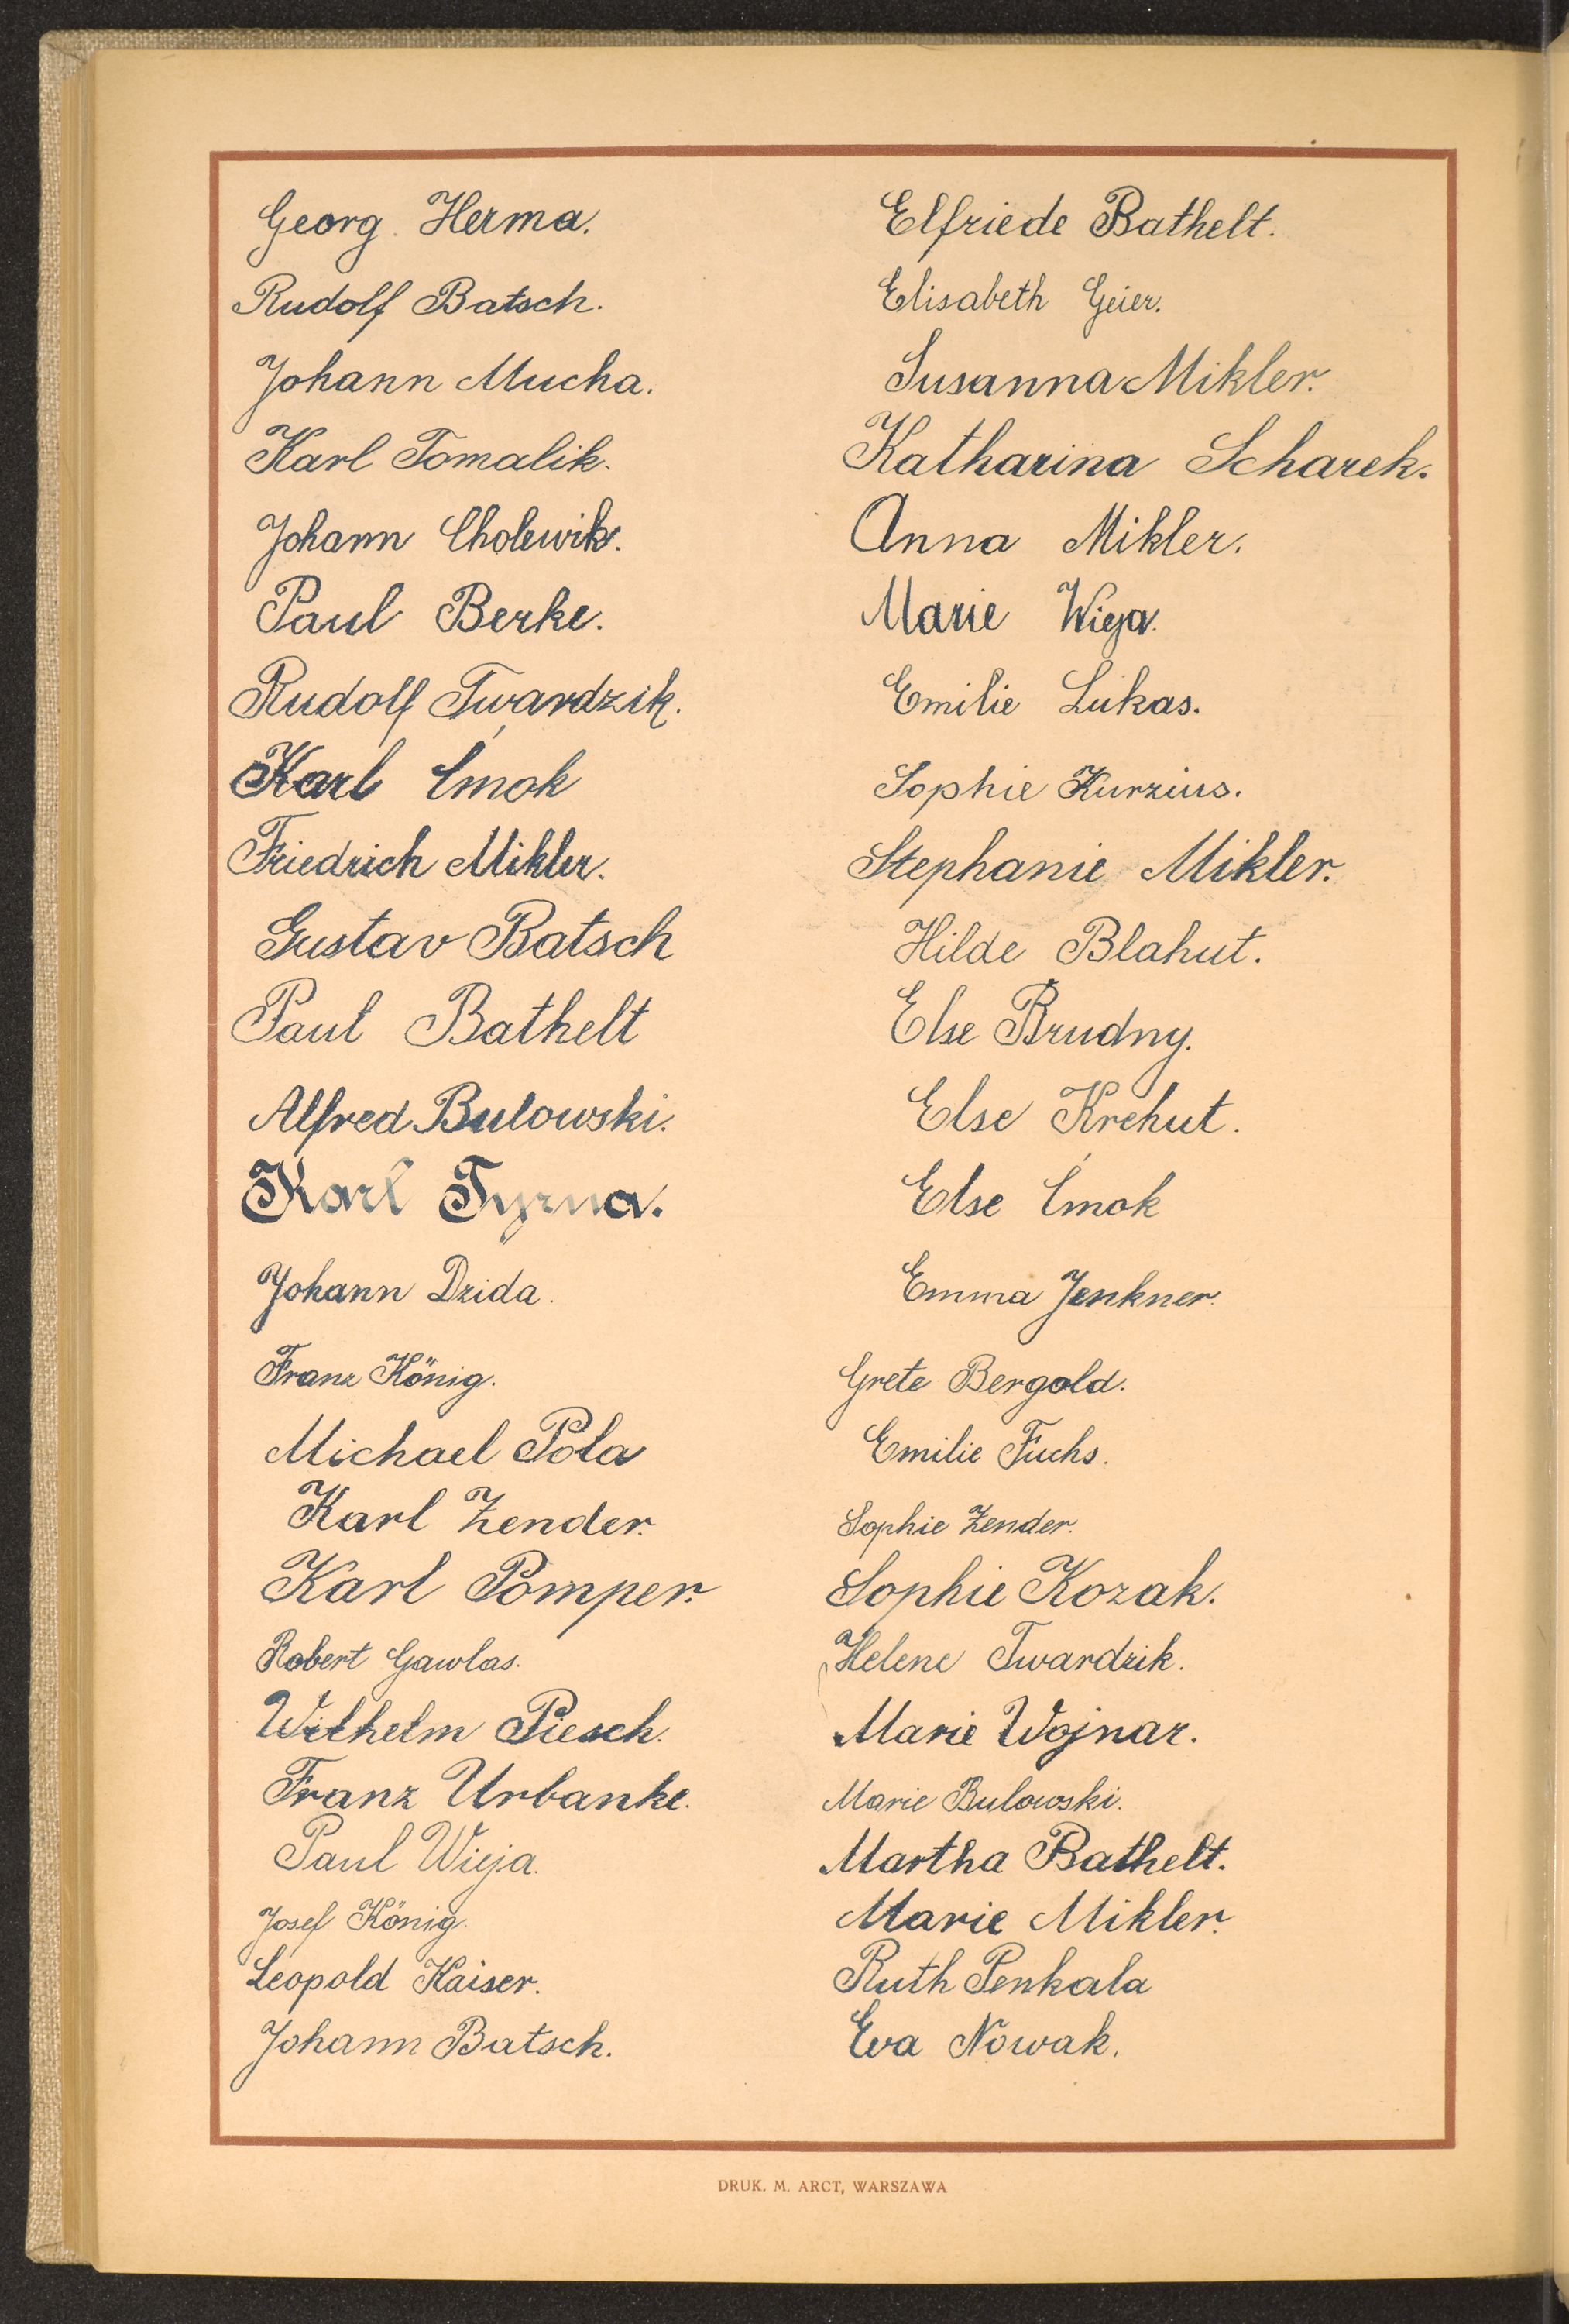 Georg Herma.
Rudolf Batsch.
Johann Mucha.
Karl Tomalik.
Johann Cholewik.
Paul Berke.
Rudolf Twardzik.
Karl Ćmok
Friedrich Mikler.
Gustav Batsch
Paul Bathelt
Alfred Bulowski.
Karl Tyrna.
Johann Dzida.
Franz König.
Michael Pola
Karl Zender.
Karl Pomper.
Robert Gawlas.
Wilhelm Piesch.
Franz Urbanke.
Paul Wieja.
Josef König.
Leopold Kaiser.
Johann Batsch.
Elfriede Bathelt.
Elisabeth Geier.
Susanna Mikler.
Katharina Scharek.
Anna Mikler.
Marie Wieja.
Emilie Lukas.
Sophie Kurzius.
Stephanie Mikler.
Hilde Blahut.
Else Brudny.
Else Krehut.
Else Ćmok
Emma Jenkner.
Grete Bergold.
Emilie Fuchs.
Sophie Zender.
Sophie Kozak.
Helene Twardzik.
Marie Wojnar.
Marie Bulowski.
Martha Bathelt.
Marie Mikler.
Ruth Penkala
Eva Nowak.
DRUK. M. ARCT, WARSZAWA